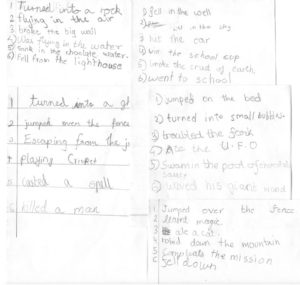 1 Turned into a rock
2 flying in the air
3 broke the big wall
4) Was flying in the water
5) Sank in the choclate water.
6) Fell from the lighthouse
1 turned into a
2 jumped over the fence
3 Escaping from the
4 playing Cricket
5 casted a spell
6 killed a man
1) fell in the well
2) in the sky
3) hit the car
4) win the school cup
5) broke the crust of earth,
6) went to school
1) jumped on the bed
2) turned into small bubbles.
3) the
4) Ate the U.F.O
5) Swam in the pool of chocolate
6) waved his giant wand
1 Jumped over the fence
2 learnt magic.
3 ate a cat.
4 down the mountain
5 the mission
6 fell down